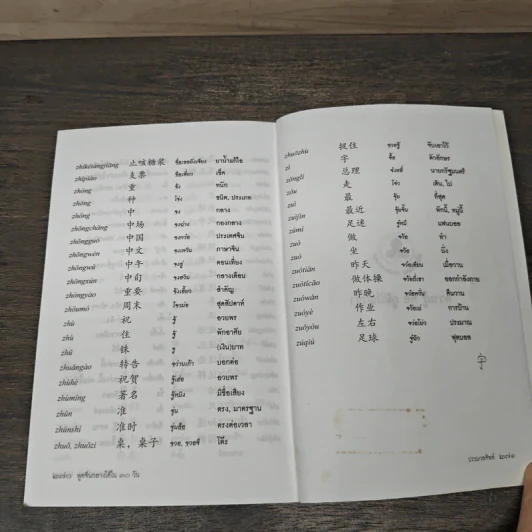 zhǐkétángjiāng 止咳糖浆 ยาน้ำแก้ไอ
zhīpiào 支票 เช็ค
zhòng 重 จ้ง หนัก
zhǒng 种 ชนิด, ประเภท
zhōng 中 จง กลาง
zhōngchǎng 中场 กองกลาง
zhōngguó 中国 ประเทศจีน
zhōngwén 中文 จงเหวิน ภาษาจีน
zhōngwǔ 中午 จงอู่ ตอนเที่ยง
zhōngxún 中旬 จงสวิน กลางเดือน
zhòngyào 重要 จ้งเยี่ยว สำคัญ
zhōumò 周末 โจวม่อ สุดสัปดาห์
zhù 祝 จู้ อวยพร
zhù 住 จู้ พักอาศัย
zhū 铢 จู (เงิน)บาท
转告 จว่านเก้า บอกต่อ
zhùhè 祝贺 จู้เฮ่อ อวยพร
zhùmíng 著名 จู้หมิง มีชื่อเสียง
zhǔn 准 จุ่น ตรง, มาตรฐาน
zhǔnshí 准时 จุ่นสือ ตรงต่อเวลา
zhuō, zhuōzi 桌, 桌子 จวอ, จวอจึ โต๊ะ
๒๗๐ พูดจีนกลางได้ใน ๓๐ วัน
zhuōzhù 捉住 จวอจู้ จับเอาไว้
zì 字 จื้อ ตัวอักษร
zǒnglǐ 总理 จ่งหลี่ นายกรัฐมนตรี
zǒu 走 โจ่ว เดิน, ไป
zuì 最 จุ้ย ที่สุด
zuìjìn 最近 จุ้ยจิ้น พักนี้, หมู่นี้
zúmí 足迷 จู๋หมี แฟนบอล
zuò 做 จว้อ ทำ
zuò 坐 จว้อ นั่ง
zuótiān 昨天 จว๋อเทียน เมื่อวาน
zuòtǐcāo 做体操 ออกกำลังกาย
zuówǎn 昨晚 จว๋อหวั่น คืนวาน
zuòyè 作业 จว้อเย่ การบ้าน
zuǒyòu 左右 จว่อโย่ว ประมาณ
zúqiú 足球 จู๋ฉิว ฟุตบอล
字
ประมวลศัพท์ ๒๗๑